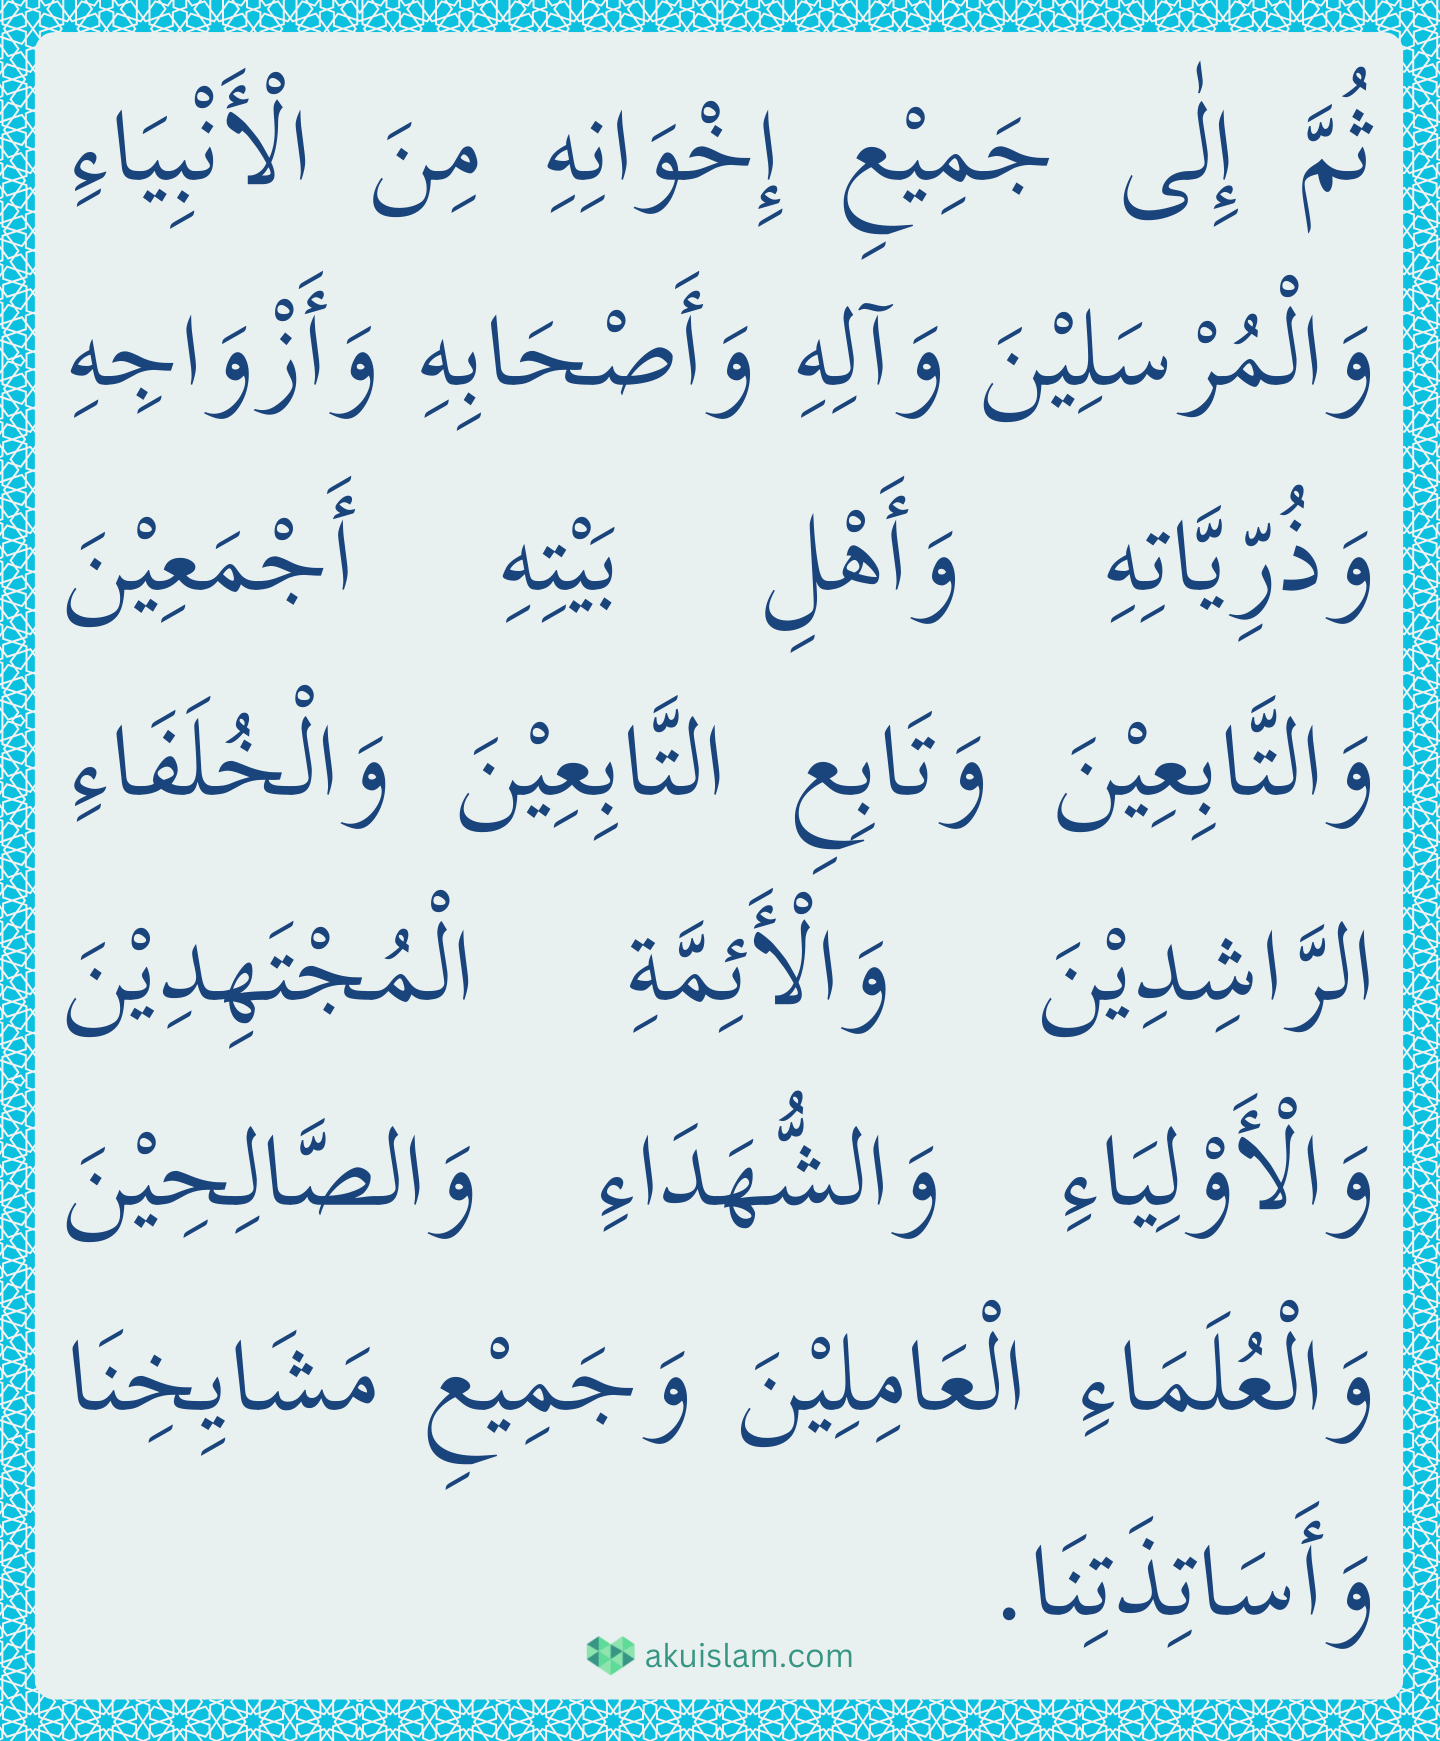 ثُمَّ إِلٰى جَمِيْعِ إِخْوَانِهِ مِنَ الْأَنْبِيَاءِ
وَالْمُرْسَلِيْنَ وَآلِهِ وَأَصْحَابِهِ وَأَزْوَاجِهِ
وَذُرِّيَّاتِهِ وَأَهْلِ بَيْتِهِ أَجْمَعِيْنَ
وَالتَّابِعِيْنَ وَتَابِعِ التَّابِعِيْنَ وَالْخُلَفَاءِ
الرَّاشِدِيْنَ وَالْأَئِمَّةِ الْمُجْتَهِدِيْنَ
وَالْأَوْلِيَاءِ وَالشُّهَدَاءِ وَالصَّالِحِيْنَ
وَالْعُلَمَاءِ الْعَامِلِيْنَ وَجَمِيْعِ مَشَايِخِنَا
وَأَسَاتِذَتِنَا.
akuislam.com